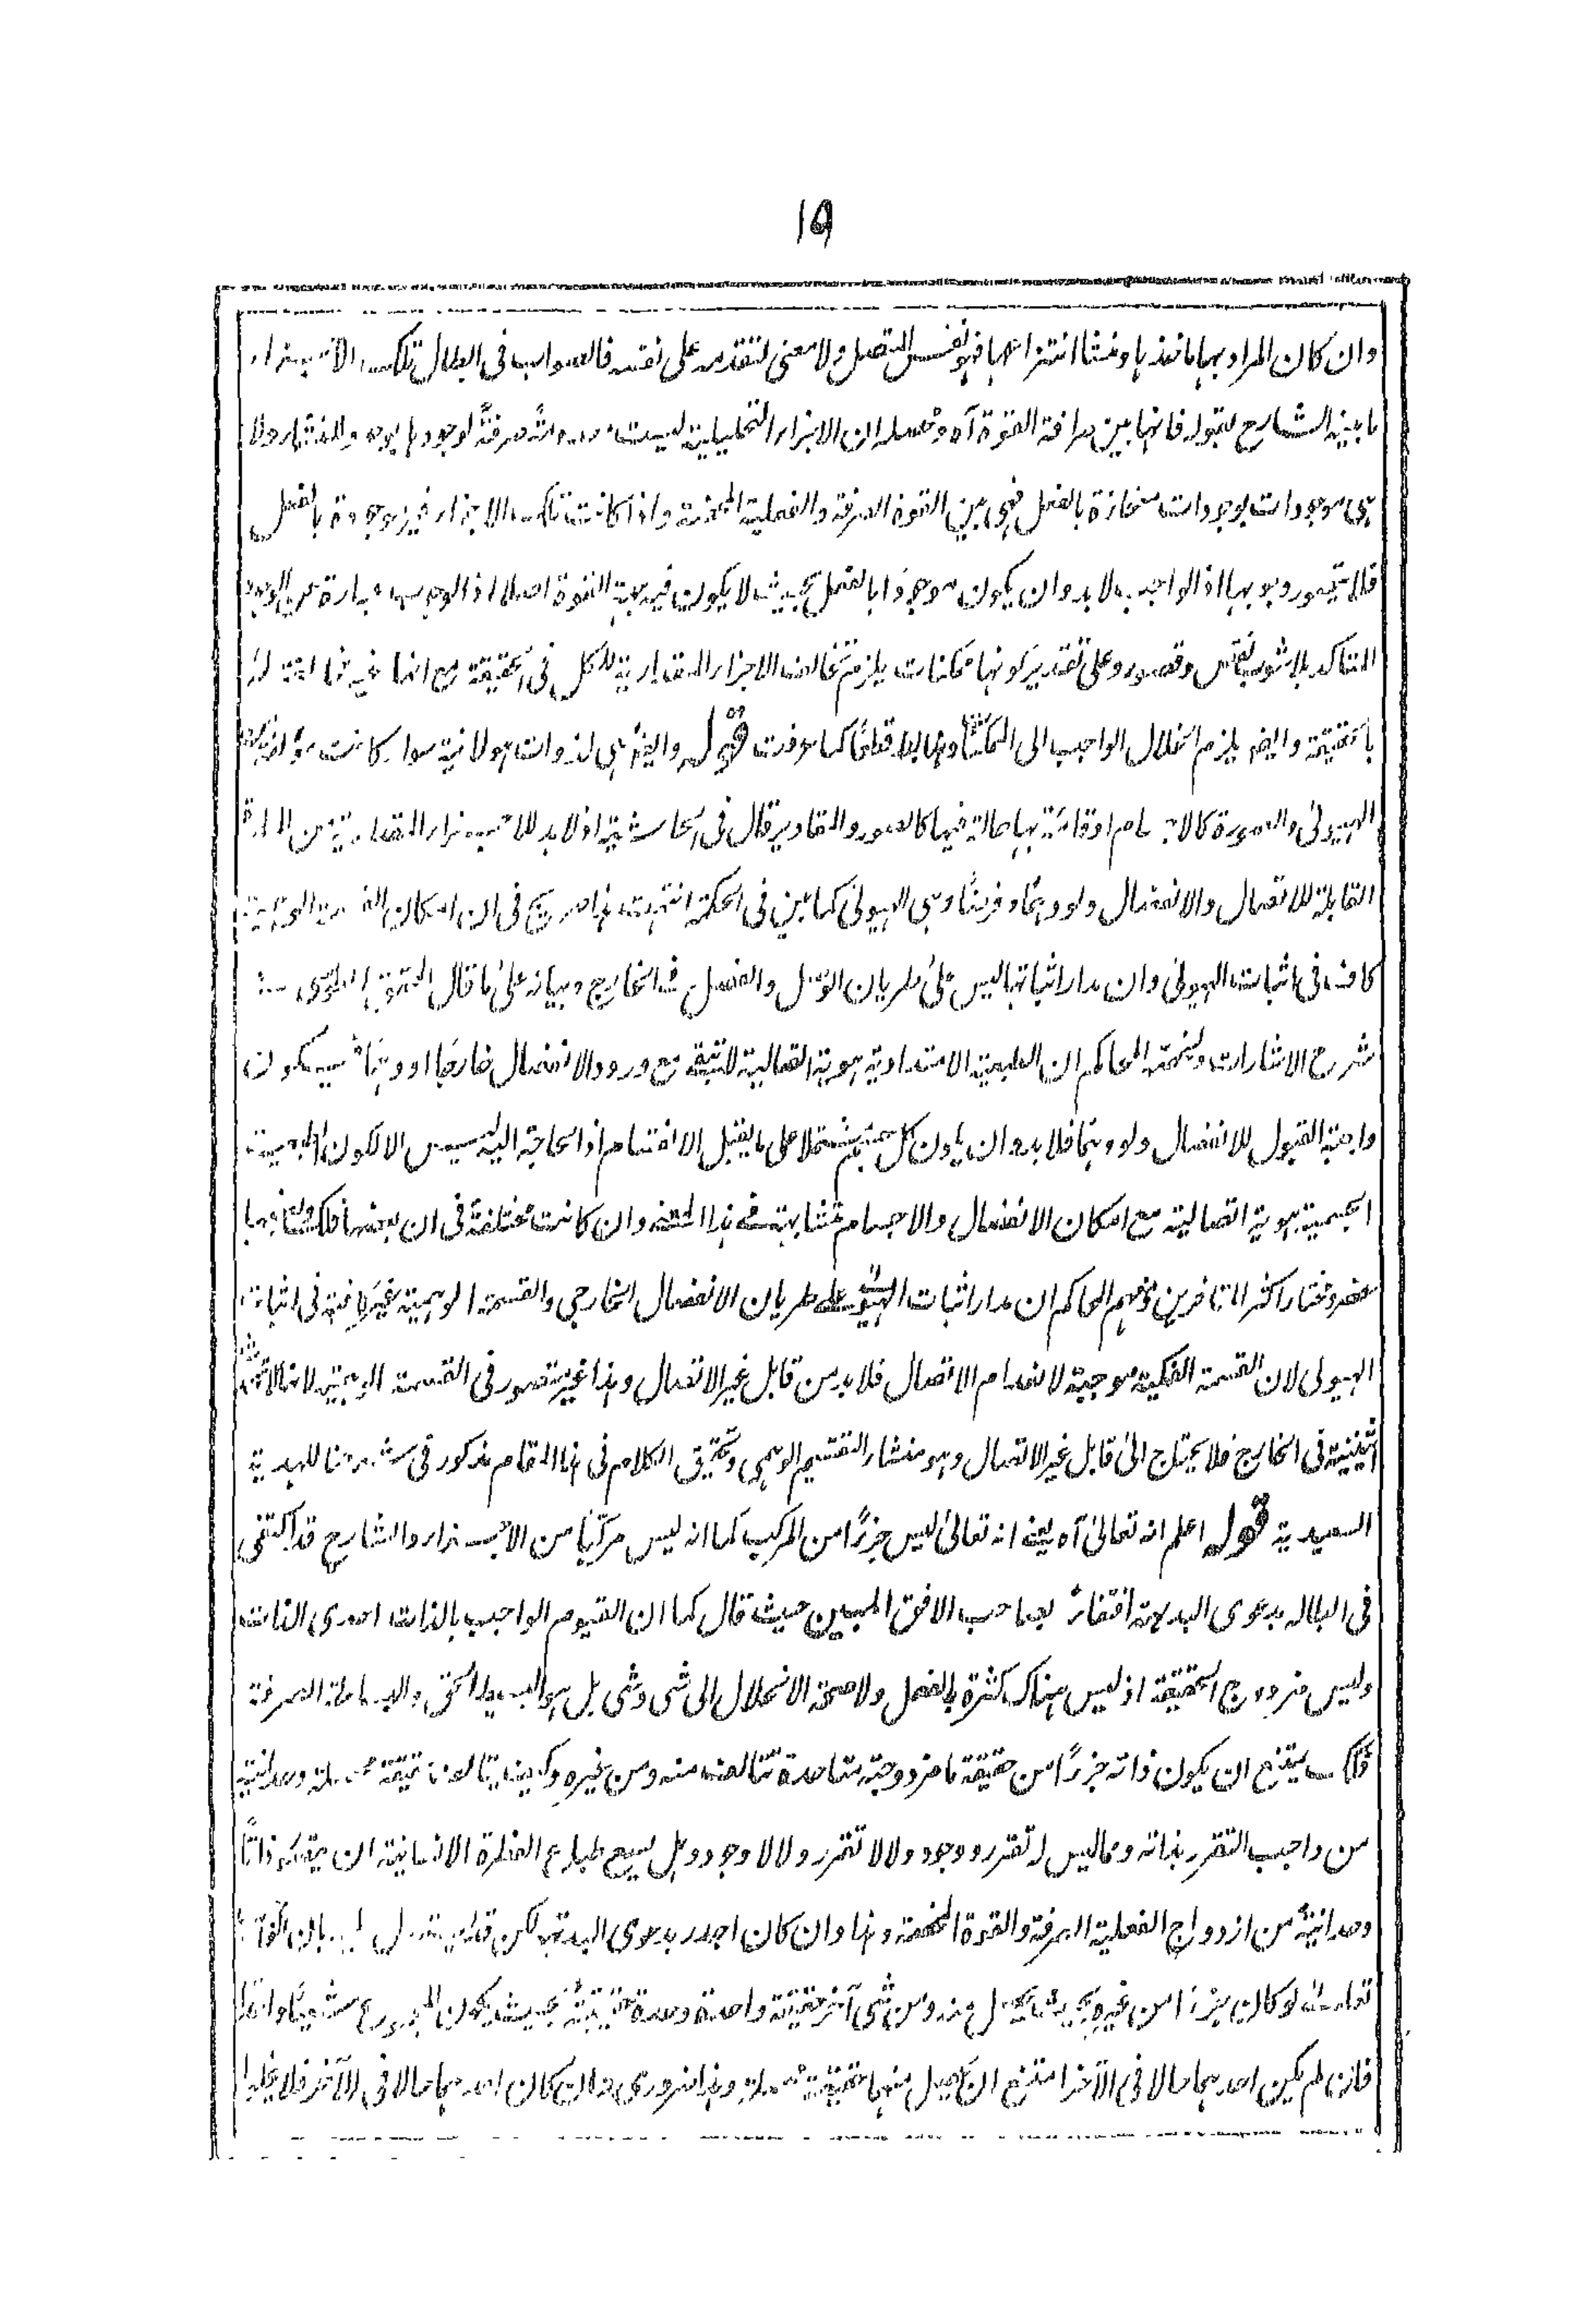 ١٩
وان كان المراد بها ماخذها ومنشأ انتزاعها فهو نفس المتصل ولا معنى لتقدمه على نفسه فالصواب فى ابطال تلك الاجزاء
ما بينه الشارح بقوله فانها بين صرافة القوة آه ومحصله ان الاجزاء التحليلية ليست صرفة لوجودها بوجود المنشاء ولا
هى موجودات بوجودات منحازة بالفعل فهى بين القوة الصرفة والفعلية المحضة واذا كانت تلك الاجزاء غير موجودة بالفعل
فلا يتصور وجوبها اذ الواجب لا بد وان يكون موجودا بالفعل بحيث لا يكون فيه جهة القوة اصلا اذ الوجوب عبارة عن الوجود
المتاكد بلا شوب نقص وقصور وعلى تقدير كونها ممكنات يلزم تخالف الاجزاء المقدارية للكل فى الحقيقة مع انها غير مخالفة له
بالحقيقة وايضا يلزم انحلال الواجب الى الممكنات وهو باطل قطعا كما عرفت قوله والغير هى لذوات هيولانية سواء كانت مؤلفة من
الهيولى والصورة كالاجسام او قائمة بها حالة فيها كالصور والمقادير قال فى الحاشية اذ لا بد للاجزاء المقدارية من المادة
القابلة للاتصال والانفصال ولو وهما وفرضا وهى الهيولى كما بين فى الحكمة انتهت هذا صريح فى ان امكان القسمة الوهمية
كاف فى اثبات الهيولى وان مدار اثباتها ليس على طريان الوصل والفصل فى الخارج وبيانه على ما قال المحقق الطوسى فى
شرح الاشارات ونقحه المحاكم ان الطبيعة الامتدادية هوية اتصالية لا تبقى مع ورود الانفصال خارجا او وهما فيكون
واجبة القبول للانفصال ولو وهما فلا بد وان يكون كل جسم مشتملا على ما يقبل الانقسام اذ الحاجة اليه ليس الا لكون الطبيعة
الجسمية هوية اتصالية مع امكان الانفصال والاجسام متشابهة فى هذا المعنى وان كانت مختلفة فى ان بعضها فلكى وبعضها
عنصرى ومختار اكثر المتاخرين ومنهم المحاكم ان مدار اثبات الهيولى على طريان الانفصال الخارجى والقسمة الوهمية غير كافية فى اثبات
الهيولى لان القسمة الفكية موجبة لانعدام الاتصال فلا بد من قابل غير الاتصال وهذا غير متصور فى القسمة الوهمية لانها لا تحدث
اثنينية فى الخارج فلا يحتاج الى قابل غير الاتصال وهو منشاء التقسيم الوهمى وتحقيق الكلام فى هذا المقام مذكور فى شرحنا للهدية
السعيدية قوله اعلم انه تعالى آه يعنى انه تعالى ليس جزءا من المركب كما انه ليس مركبا من الاجزاء والشارح قد اكتفى
فى ابطاله بدعوى البداهة اقتفاء بصاحب الافق المبين حيث قال كما ان القيوم الواجب بالذات احدى الذات
وليس مزدوج الحقيقة اذ ليس هناك كثرة بالفعل ولا صحة الانحلال الى شى وشى بل هو البسيط الحق والبساطة الصرفة
كذلك يمتنع ان يكون ذاته جزءا من حقيقة ما مزدوجة متاحدة تتالف منه ومن غيره وكيف يتالف حقيقة محصلة وحدانية
من واجب التقرر بذاته ومما ليس له تقرر ووجود ولا لا تقرر ولا لا وجود وهل يسع طباع الفطرة الانسانية ان يتقرر ذاتا
وحدانية من ازدواج الفعلية الصرفة والقوة المحضة وهذا وان كان اجدر بدعوى البداهة لكن قد يستدل عليه بان الواجب
تعالى لو كان جزءا من غيره بحيث يحصل منه ومن شى آخر حقيقة واحدة وحدة حقيقية بحيث يكون المجموع شيئا واحدا
فان لم يكن احدهما حالا فى الآخر امتنع ان يحصل منهما حقيقة محصلة وهذا ضرورى وان كان احدهما حالا فى الآخر فلا يخلو